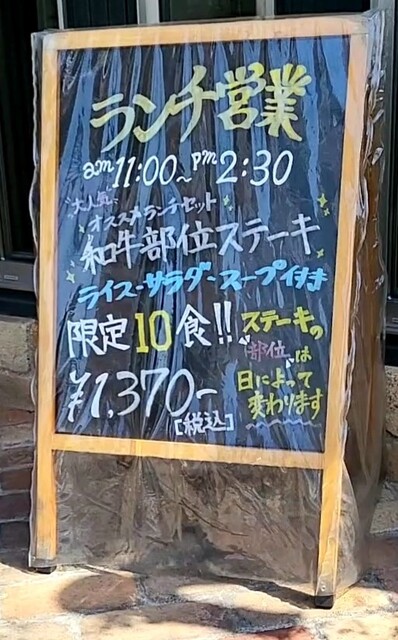 ランチ営業
am11:00～pm2:30
"大人気"
オススメランチセット
和牛部位ステーキ
ライス・サラダ・スープ付き
限定10食!!
¥1,370-
[税込]
ステーキの
"部位"は
日によって
変わります